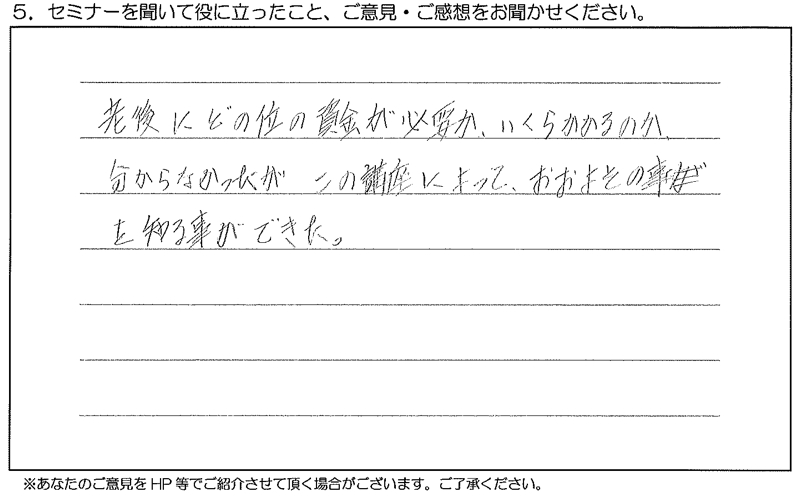 5. セミナーを聞いて役に立ったこと、ご意見・ご感想をお聞かせください。
老後にどの位の資金が必要か、いくらかかるのか、
分からなかったが この講座によって、おおよその事
を知る事ができた。
※あなたのご意見をHP等でご紹介させて頂く場合がございます。ご了承ください。